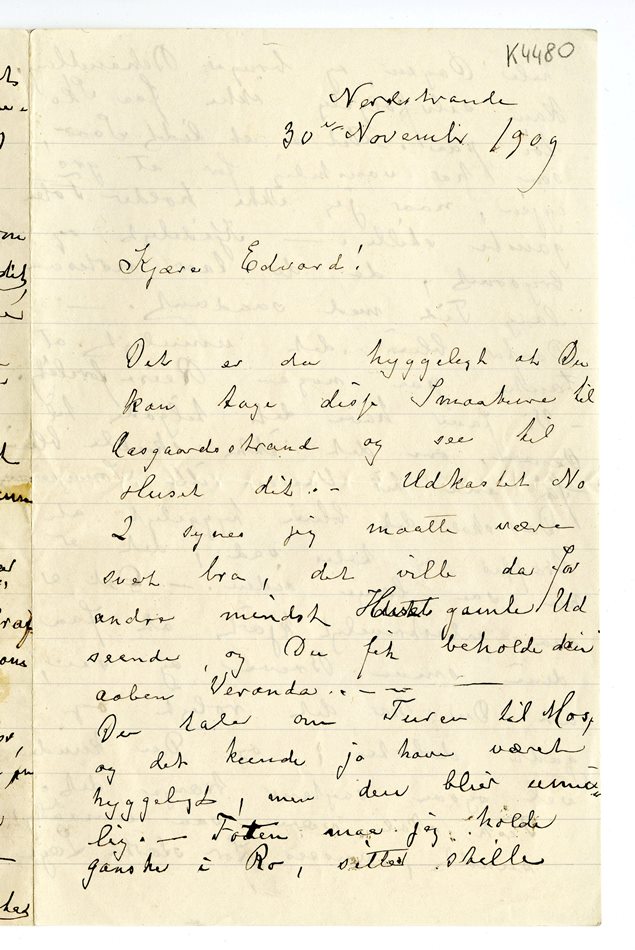 K4480
Nordstrande
30te November 1909
Kjære Edvard!
Det er da hyggeligt at Du
kan tage disse Smaature til
Aasgaardsstrand og see til
Huset dit. – Udkastet No
2 synes jeg maatte være
svært bra, det ville da for
andre mindst Husets gamle Ud
seende, og Du fik beholde din
aaben Veranda. – –
Du taler om Turen til Moss,
og det kunde jo have været
hyggeligt, men den bliver umu
lig. – Foten maa jeg holde
ganske i Ro, sitter stille